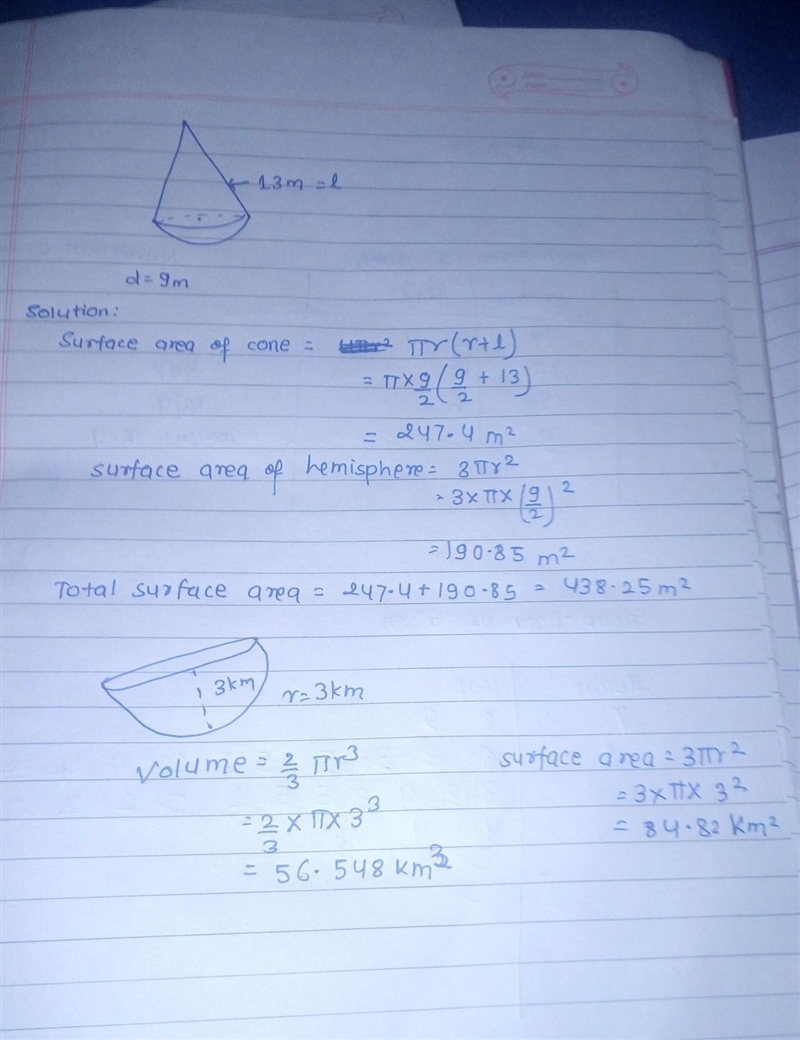 13m = l
d = 9m
Solution:
Surface area of cone = πr(r+l)
= π×9/2(9/2 + 13)
= 247.4 m²
Surface area of hemisphere = 3πr²
= 3×π×(9/2)²
= 190.85 m²
Total surface area = 247.4 + 190.85 = 438.25 m²
3km r = 3km
Volume = 2/3 πr³
= 2/3 × π × 3³
= 56.548 km³
surface area = 3πr²
= 3×π× 3²
= 84.82 Km²